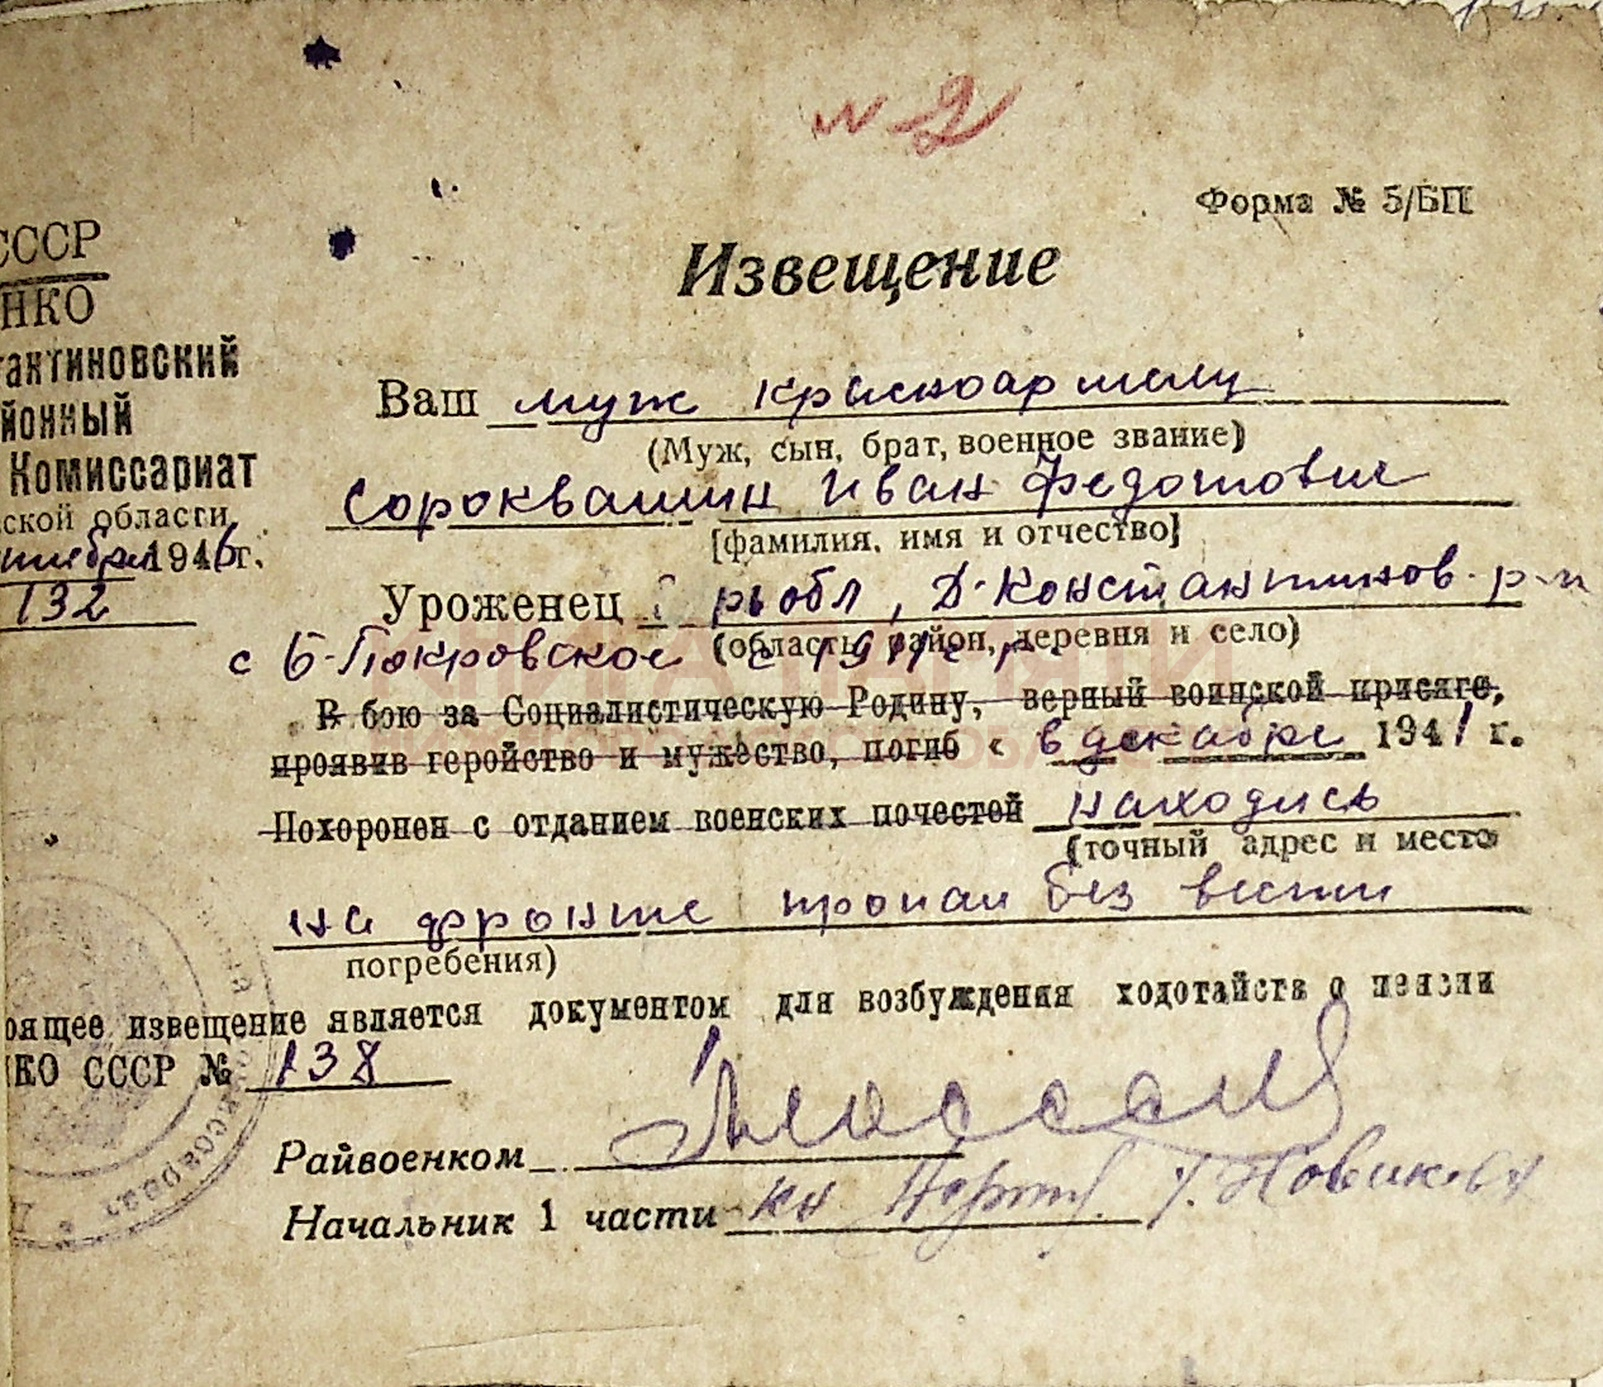 № 2
Форма № 5/БП
СССР
НКО
тантиновский
йонный
Комиссариат
ской области
1946 г.
132
Извещение
Ваш муж красноармеец
(Муж, сын, брат, военное звание)
Сороквашин Иван Федотович
[фамилия, имя и отчество]
Уроженец рьобл, Д-Константинов. р-н
(область, район, деревня и село)
с Б-Покровское 1911 г.р.
В бою за Социалистическую Родину, верный воинской присяге,
проявив геройство и мужество, погиб « в декабре 1941 г.
Похоронен с отданием военских почестей находись
(точный адрес и место
на фронте пропал без вести
погребения)
оящее извещение является документом для возбуждения ходотайства о пенсии
НКО СССР № 138
Райвоенком
Начальник 1 части Новиков
КНИГА ПАМЯТИ